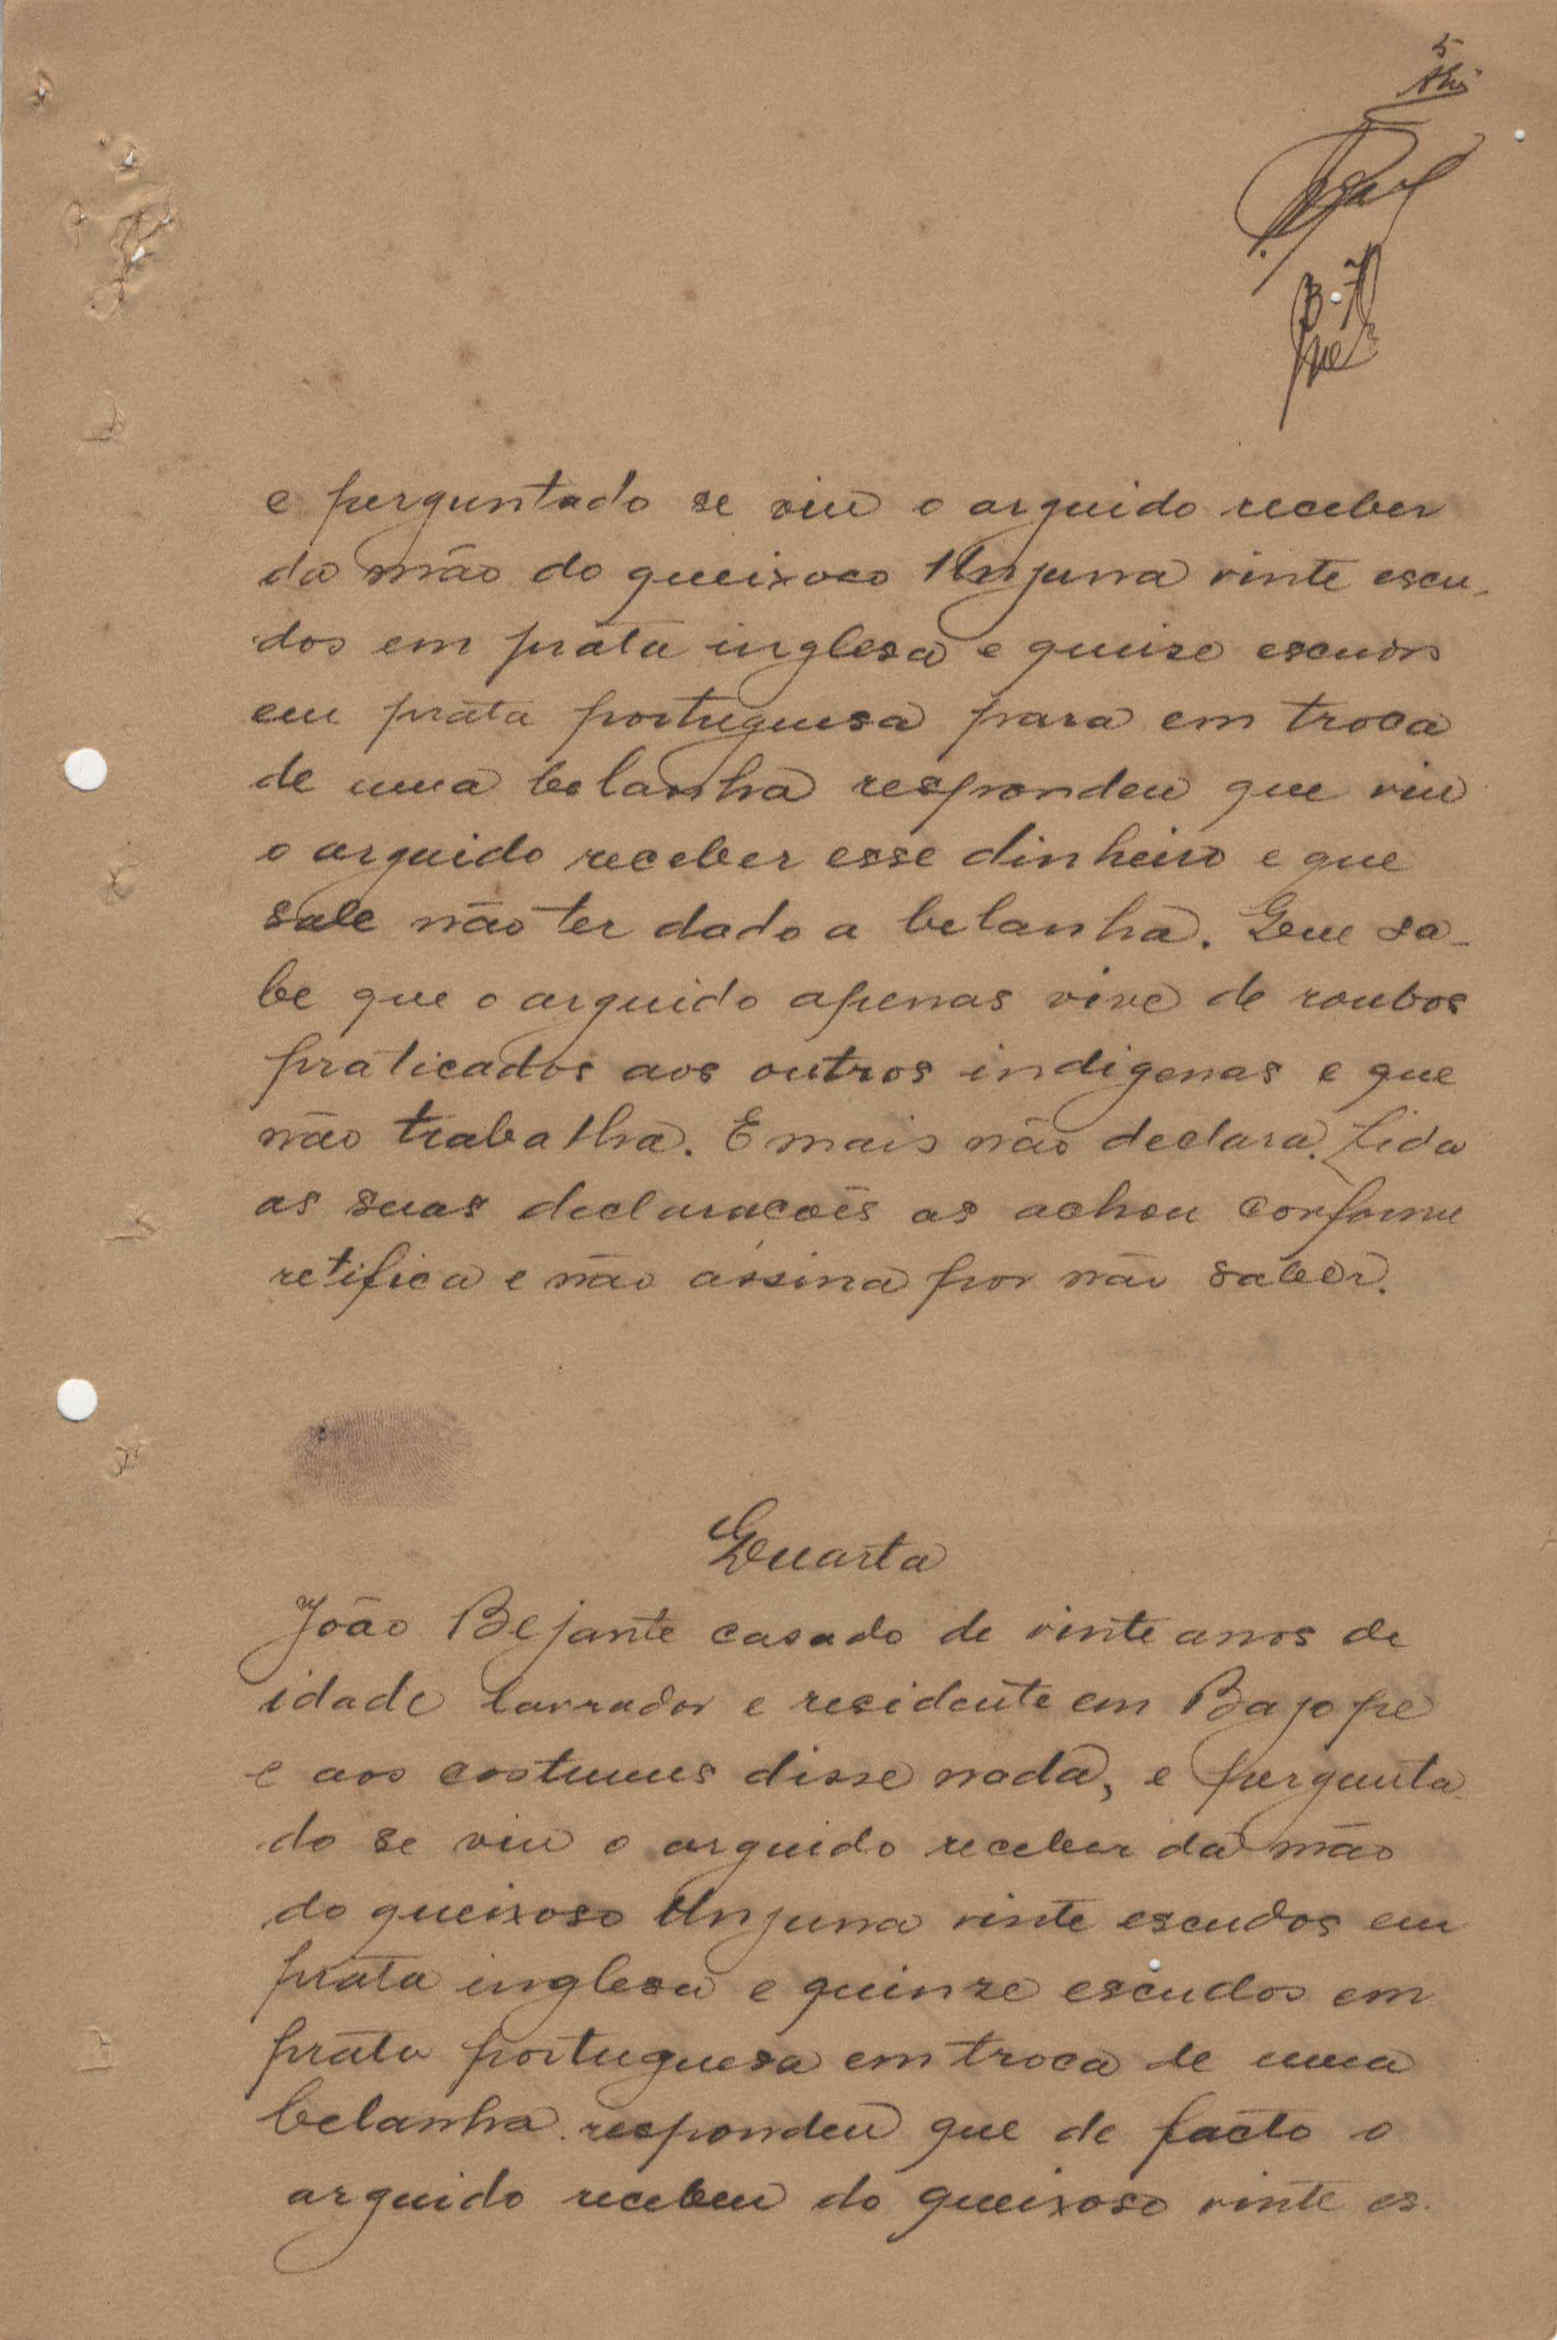 5
e perguntado se viu o arguido receber
da mão do queixoso Unjuna vinte escu-
dos em prata inglesa e quinse escudos
em prata portuguesa para em troca
de uma bolanha respondeu que viu
o arguido receber esse dinheiro e que
sabe não ter dado a belanha. Que sa-
be que o arguido apenas vive de roubos
praticados aos outros indigenas e que
não trabalha. E mais não declara. Lida
as suas declaracoẽs as achou conforme
retifica e não assina por não saber.
Quarta
João Bejante casado de vinte anos de
idade lavrador e residente em Bajope
e aos costumes disse nada, e pergunta
do se viu o arguido receber da mão
do queixoso Unjuna vinte escudos em
prata inglesa e quinze escudos em
prata portuguesa em troca de uma
belanha respondeu que de facto o
arguido recebeu do queixoso vinte es-